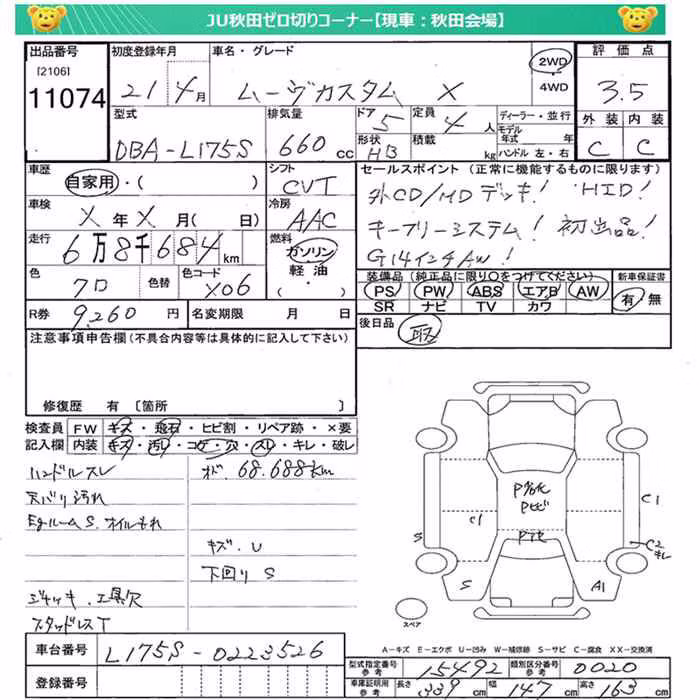 JU秋田ゼロ切りコーナー【現車：秋田会場】
出品番号 初度登録年月 車名・グレード 2WD 4WD 評価点
[2106]
11074 21 4月 ムーヴカスタム X 3.5
型式 排気量 ドア 定員 ディーラー・並行 外装 内装
DBA-L175S 660cc 5 4人 モデル年式 年 C C
形状 積載
HB kg ハンドル 左・右
車歴 シフト セールスポイント（正常に機能するものに限ります）
自家用・( ) CVT 外CD/MDデッキ! HID!
車検 冷房 キーフリーシステム! 初出品!
X年X月( 日) AAC G14インチAW!
走行 燃料
6万8千684km ガソリン
軽油
・( )
色 色替 色コード 装備品（純正品に限り○をつけてください） 新車保証書
クロ X06 PS PW ABS エアB AW 有・無
SR ナビ TV カワ
R券 9,260円 名変期限 月 日 後日品 取
注意事項申告欄（不具合内容等は具体的に記入して下さい）
修復歴 有〔箇所 〕
検査員 FW キズ・飛石・ヒビ割・リペア跡・×要
記入欄 内装 キズ・汚れ・コゲ・穴・スレ・キレ・破レ
ハンドルスレ
メ 68.688km
天バリ汚れ
EgルームS.オイルもれ
キズ.U
下回りS
ジャッキ.工具欠
スタッドレスT
Pガ化
Pヒビ
C1
C1
S
C2
キレ
S
A1
スペア
A-キズ E-エクボ U-凹み W-補修跡 S-サビ C-腐食 XX-交換済
車台番号 L175S-0223526
型式指定番号 参考 15492 類別区分番号 参考 0020
登録番号
車庫証明用 参考 長さ 339cm 幅 147cm 高さ 163cm